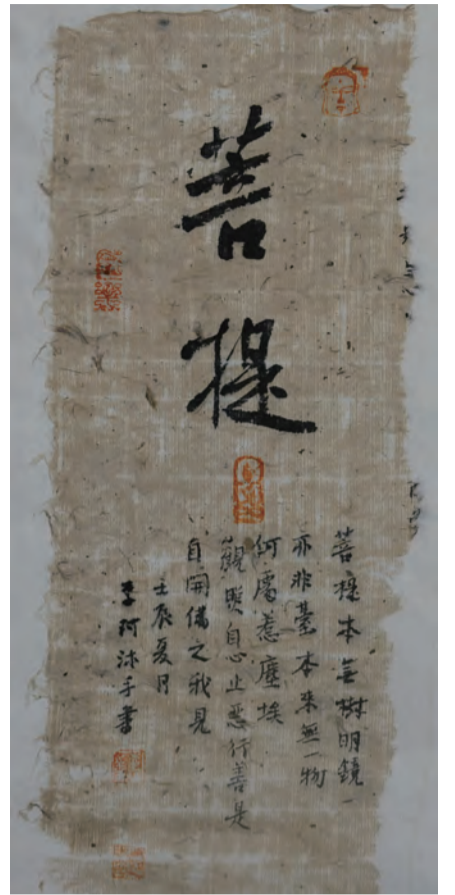 菩提
菩提本无樹明鏡
亦非臺本来無一物
何處惹塵埃
觀照自心止惡行善是
自開之我見
壬辰夏月
李阿沐手書